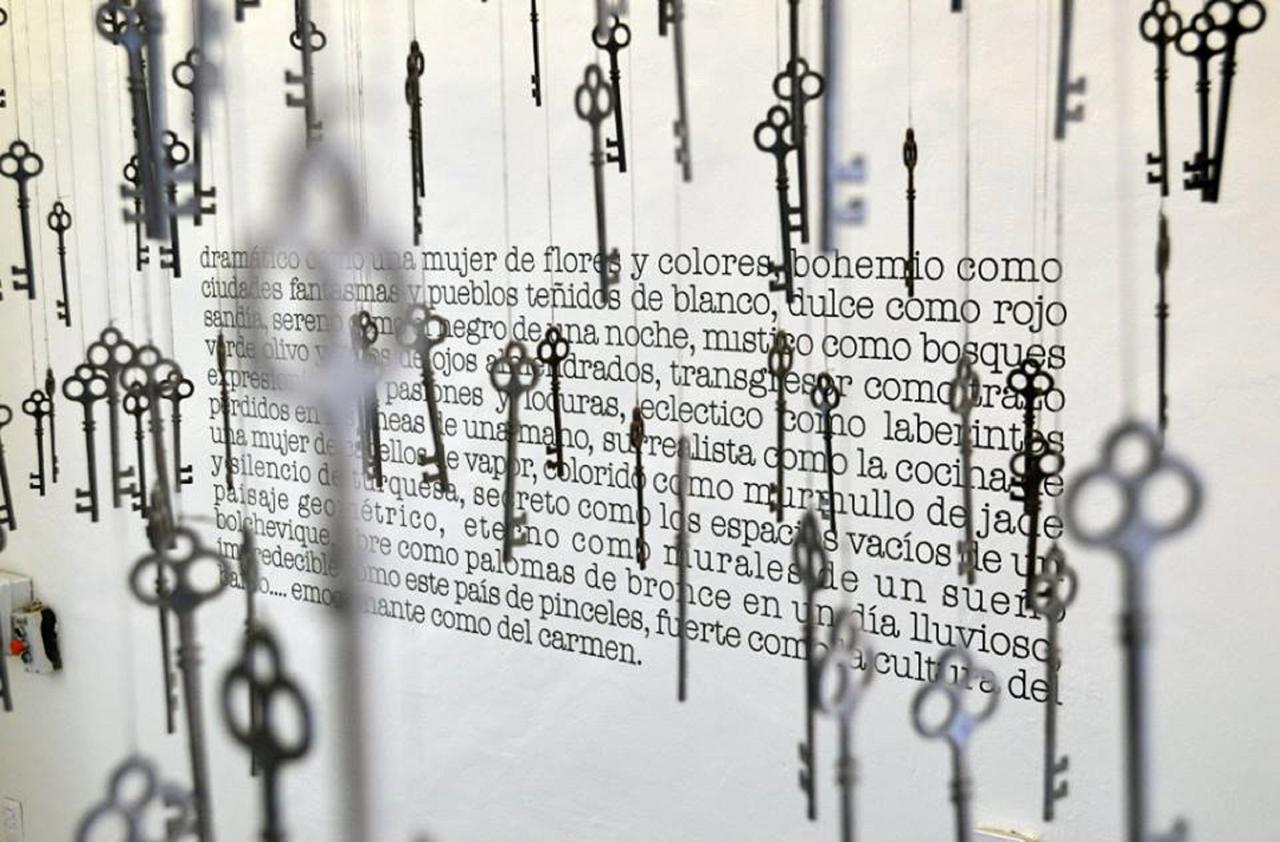 dramático como una mujer de flores y colores, bohemio como
ciudades fantasmas y pueblos teñidos de blanco, dulce como rojo
sandía, sereno como negro de una noche, mistico como bosques
verde olivo y de ojos almendrados, transgresor como trazo
pasiones y locuras, eclectico como laberintos
perdidos en líneas de una mano, surrealista como la cocina de
una mujer de cabellos de vapor, colorido como murmullo de jade
y silencio de turquesa, secreto como los espacios vacíos de un
paisaje geométrico, eterno como murales de un sueño
bolchevique, libre como palomas de bronce en un día lluvioso,
impredecible como este país de pinceles, fuerte como la cultura del
.... emocionante como del carmen.